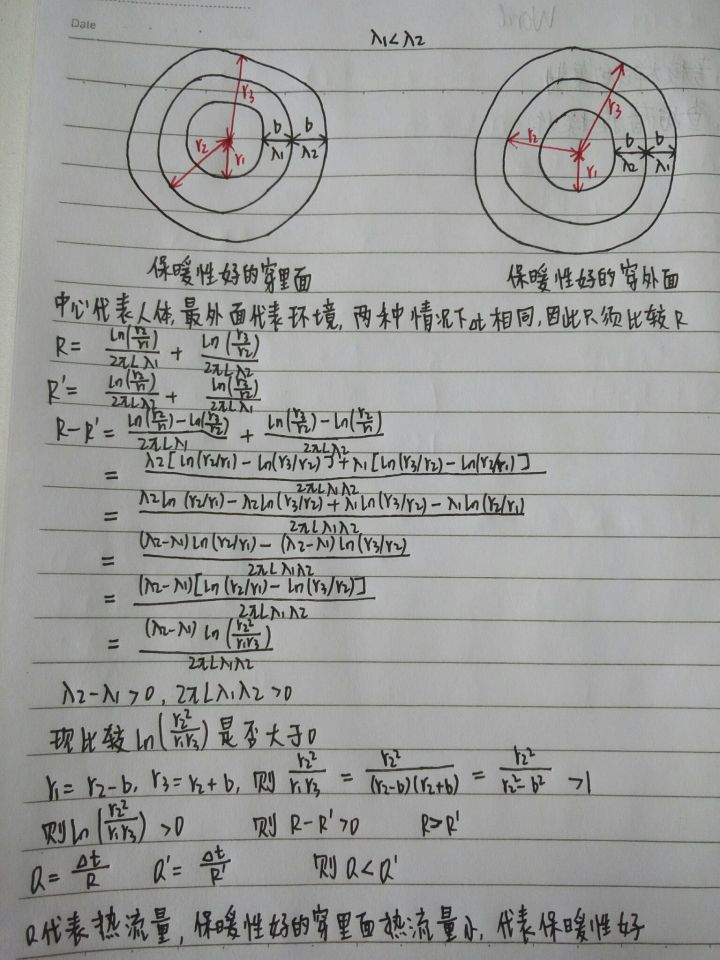 Date
λ1<λ2
r3 b b r2 λ1 λ2 r1
r3 r2 b b λ2 λ1 r1
保暖性好的穿里面 保暖性好的穿外面
中心代表人体,最外面代表环境,两种情况下Δt相同,因此只须比较R
R= ln(r2/r1)/2πLλ1 + ln(r3/r2)/2πLλ2
R'= ln(r2/r1)/2πLλ2 + ln(r3/r2)/2πLλ1
R-R'= ln(r2/r1)-ln(r3/r2)/2πLλ1 + ln(r3/r2)-ln(r2/r1)/2πLλ2
= λ2[ln(r2/r1)-ln(r3/r2)]+λ1[ln(r3/r2)-ln(r2/r1)]/2πLλ1λ2
= λ2ln(r2/r1)-λ2ln(r3/r2)+λ1ln(r3/r2)-λ1ln(r2/r1)/2πLλ1λ2
= (λ2-λ1)ln(r2/r1)-(λ2-λ1)ln(r3/r2)/2πLλ1λ2
= (λ2-λ1)[ln(r2/r1)-ln(r3/r2)]/2πLλ1λ2
= (λ2-λ1)ln(r2²/r1r3)/2πLλ1λ2
λ2-λ1>0, 2πLλ1λ2>0
现比较ln(r2²/r1r3)是否大于0
r1=r2-b, r3=r2+b, 则 r2²/r1r3 = r2²/(r2-b)(r2+b) = r2²/r2²-b² >1
则ln(r2²/r1r3)>0 则R-R'>0 R>R'
Q=Δt/R Q'=Δt/R' 则Q<Q'
Q代表热流量,保暖性好的穿里面热流量小,代表保暖性好